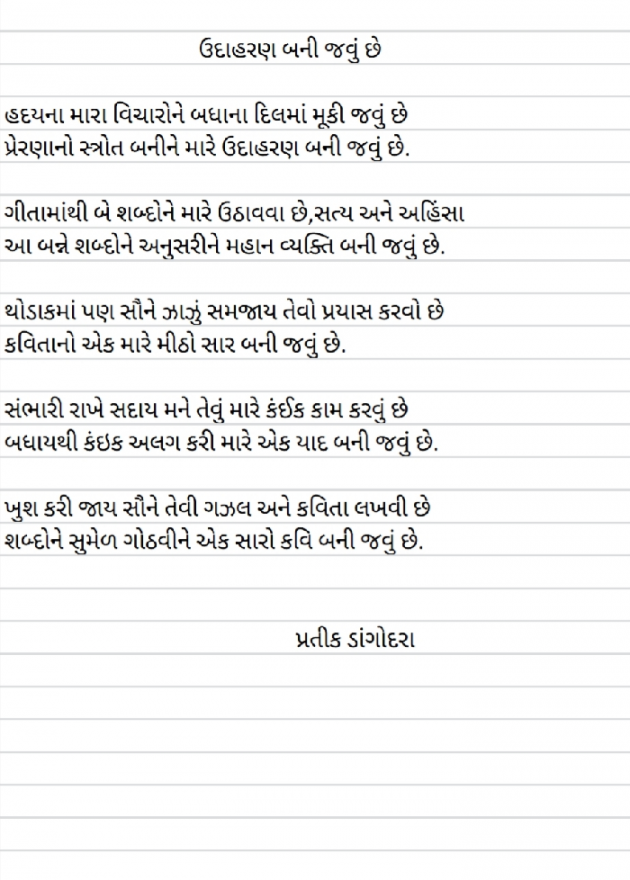 ઉદાહરણ બની જવું છે
હદયના મારા વિચારોને બધાના દિલમાં મૂકી જવું છે
પ્રેરણાનો સ્ત્રોત બનીને મારે ઉદાહરણ બની જવું છે.
ગીતામાંથી બે શબ્દોને મારે ઉઠાવવા છે,સત્ય અને અહિંસા
આ બન્ને શબ્દોને અનુસરીને મહાન વ્યક્તિ બની જવું છે.
થોડાકમાં પણ સૌને ઝાઝું સમજાય તેવો પ્રયાસ કરવો છે
કવિતાનો એક મારે મીઠો સાર બની જવું છે.
સંભારી રાખે સદાય મને તેવું મારે કંઈક કામ કરવું છે
બધાયથી કંઇક અલગ કરી મારે એક યાદ બની જવું છે.
ખુશ કરી જાય સૌને તેવી ગઝલ અને કવિતા લખવી છે
શબ્દોને સુમેળ ગોઠવીને એક સારો કવિ બની જવું છે.
પ્રતીક ડાંગોદરા